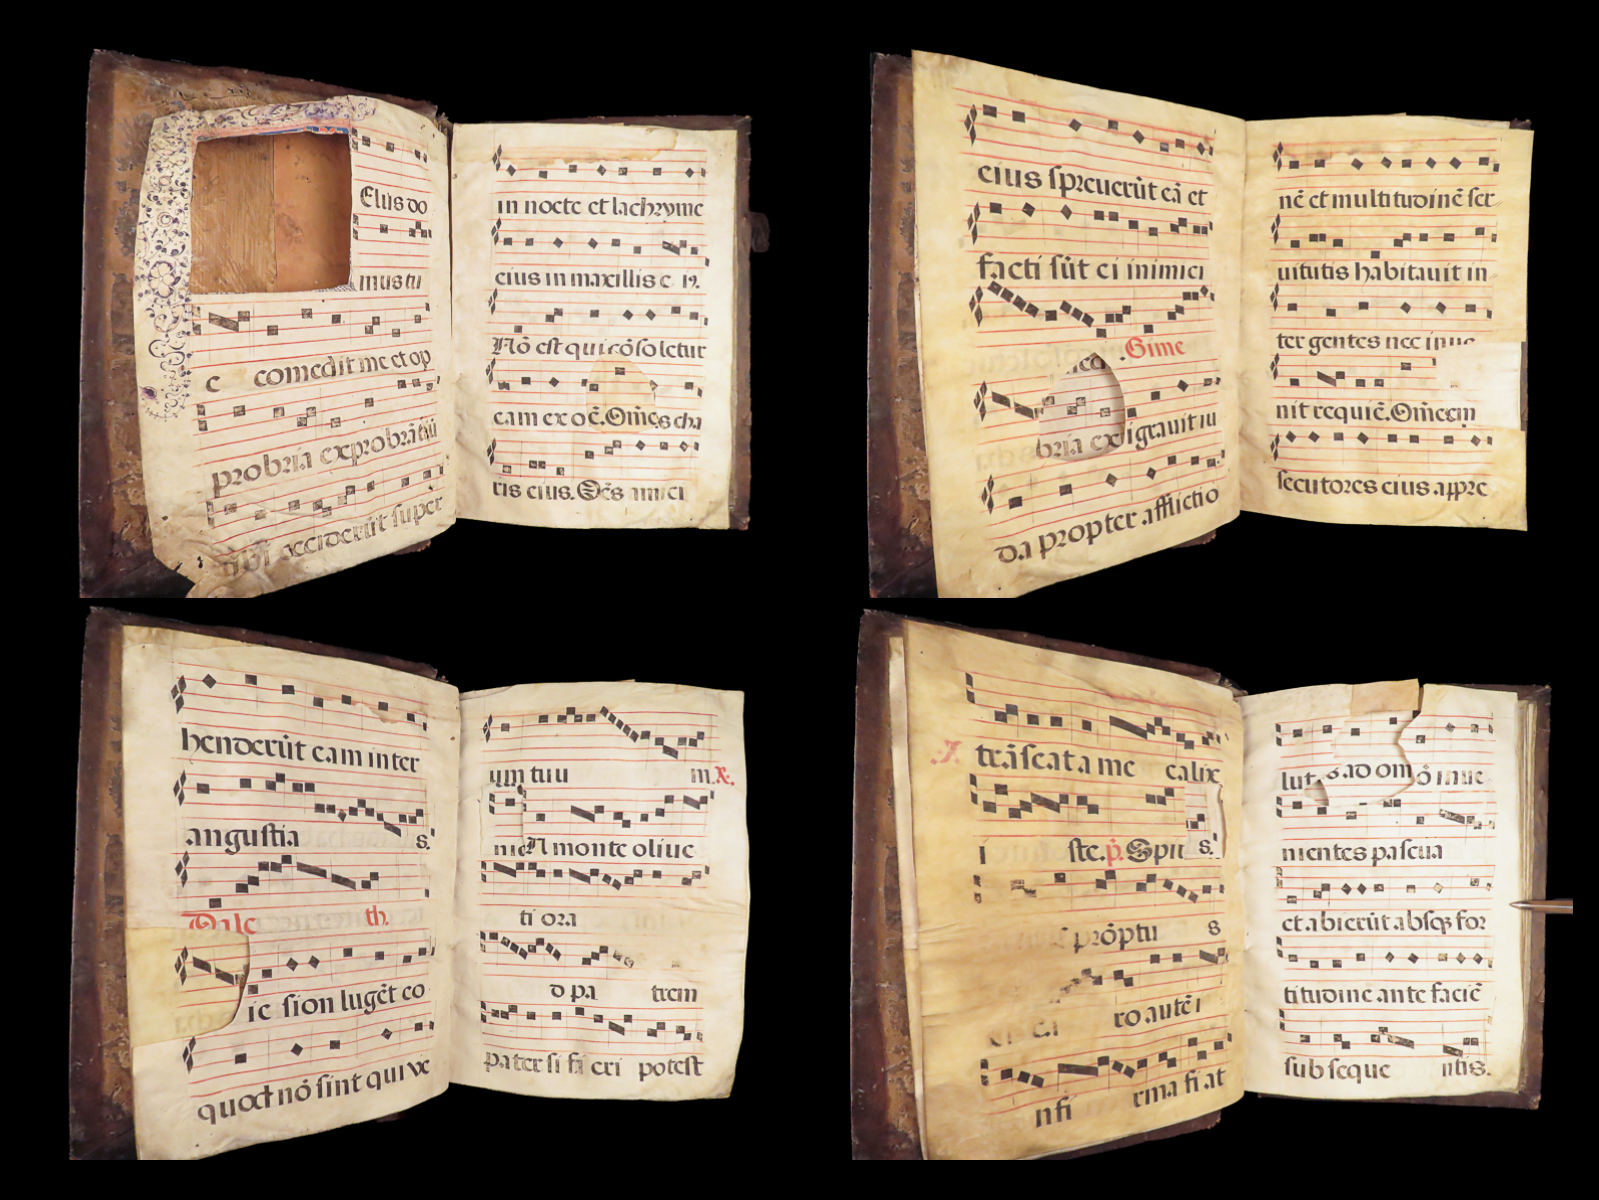 Elus do
mus tu
e comedit me et op
probria exprobrātiū
ceciderūt super
in nocte et lachryme
eius in maxillis e ֊
Nō est qui cōsoletur
eam ex oē. Om̄es cha
ris eius. Oēs amici
eius spreuerūt eā et
facti sūt ei inimici
Gime
bria ex igrauit iu
da propter afflictio
nē et multitudinē ser
uitutis habitauit in
ter gentes nec inue
nit requiē. Om̄es
secutores eius appre
henderūt eam inter
angustia s.
Dale th.
ie sion lugēt eo
quod nō sint qui ve
um tuu m.
n monte oliue
ti ora
d pa trem
pater si fi eri potest
trāseat a me calix
i ste. p̄. Spū s.
prōptu s
ro autē i
nfi rma fi at
lut s ad om ō inue
nientes pascua
et abierūt absqȝ for
titudine ante faciē
subseque ntis.